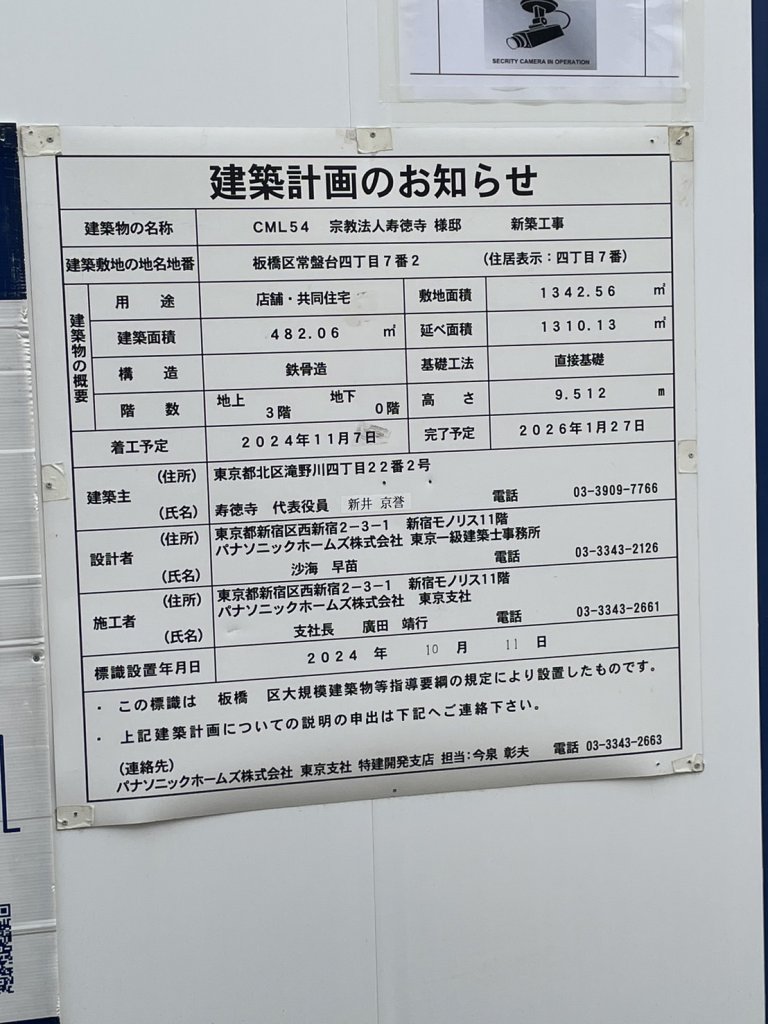 SECRITY CAMERA IN OPERATION
建築計画のお知らせ
建築物の名称 CML54 宗教法人寿徳寺 様邸 新築工事
建築敷地の地名地番 板橋区常盤台四丁目7番2 (住居表示:四丁目7番)
建築物の概要
用途 店舗・共同住宅 敷地面積 1342.56 ㎡
建築面積 482.06 ㎡ 延べ面積 1310.13 ㎡
構造 鉄骨造 基礎工法 直接基礎
階数 地上 3階 地下 0階 高さ 9.512 m
着工予定 2024年11月7日 完了予定 2026年1月27日
建築主 (住所) 東京都北区滝野川四丁目22番2号
(氏名) 寿徳寺 代表役員 新井 京誉 電話 03-3909-7766
設計者 (住所) 東京都新宿区西新宿2-3-1 新宿モノリス11階
パナソニックホームズ株式会社 東京一級建築士事務所
(氏名) 沙海 早苗 電話 03-3343-2126
施工者 (住所) 東京都新宿区西新宿2-3-1 新宿モノリス11階
パナソニックホームズ株式会社 東京支社
(氏名) 支社長 廣田 靖行 電話 03-3343-2661
標識設置年月日 2024 年 10 月 11 日
・ この標識は 板橋 区大規模建築物等指導要綱の規定により設置したものです。
・ 上記建築計画についての説明の申出は下記へご連絡下さい。
(連絡先)
パナソニックホームズ株式会社 東京支社 特建開発支店 担当:今泉 彰夫 電話 03-3343-2663